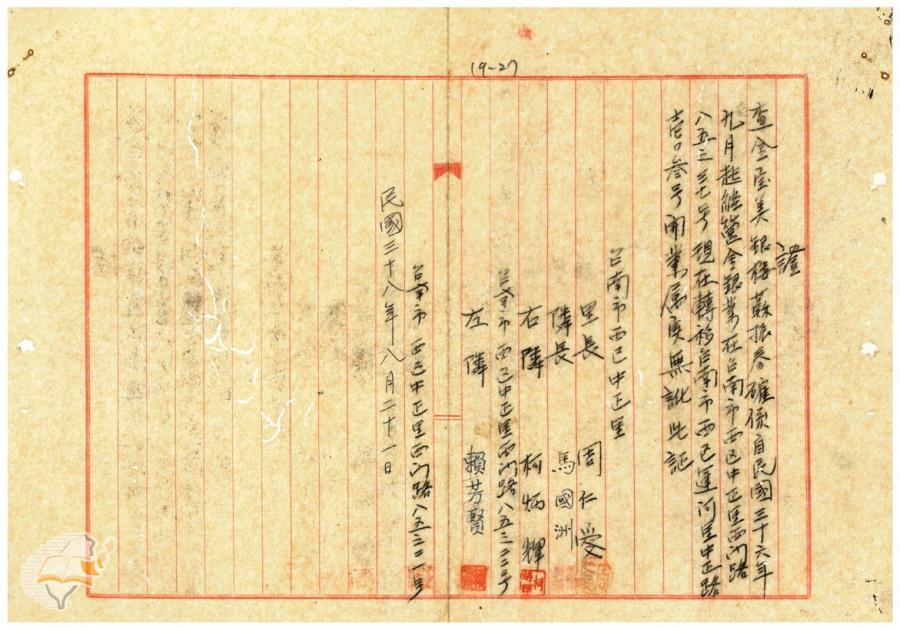 19-27
證
查金屋美銀樓蘇振春確係自民國三十六年
九月起經營金銀業在台南市西区中正里西门路
八五之三七号現在轉移台南市西区運河里中正路
壱〇参号開業属實無訛此証
台南市西区中正里
里長 周仁受
隣長 馬國洲
右隣 柯炳輝
台南市西区中正里西门路八五之三三号
左隣 賴芳賢
台南市西区中正里西门路八五之三一号
民國三十八年八月二十一日